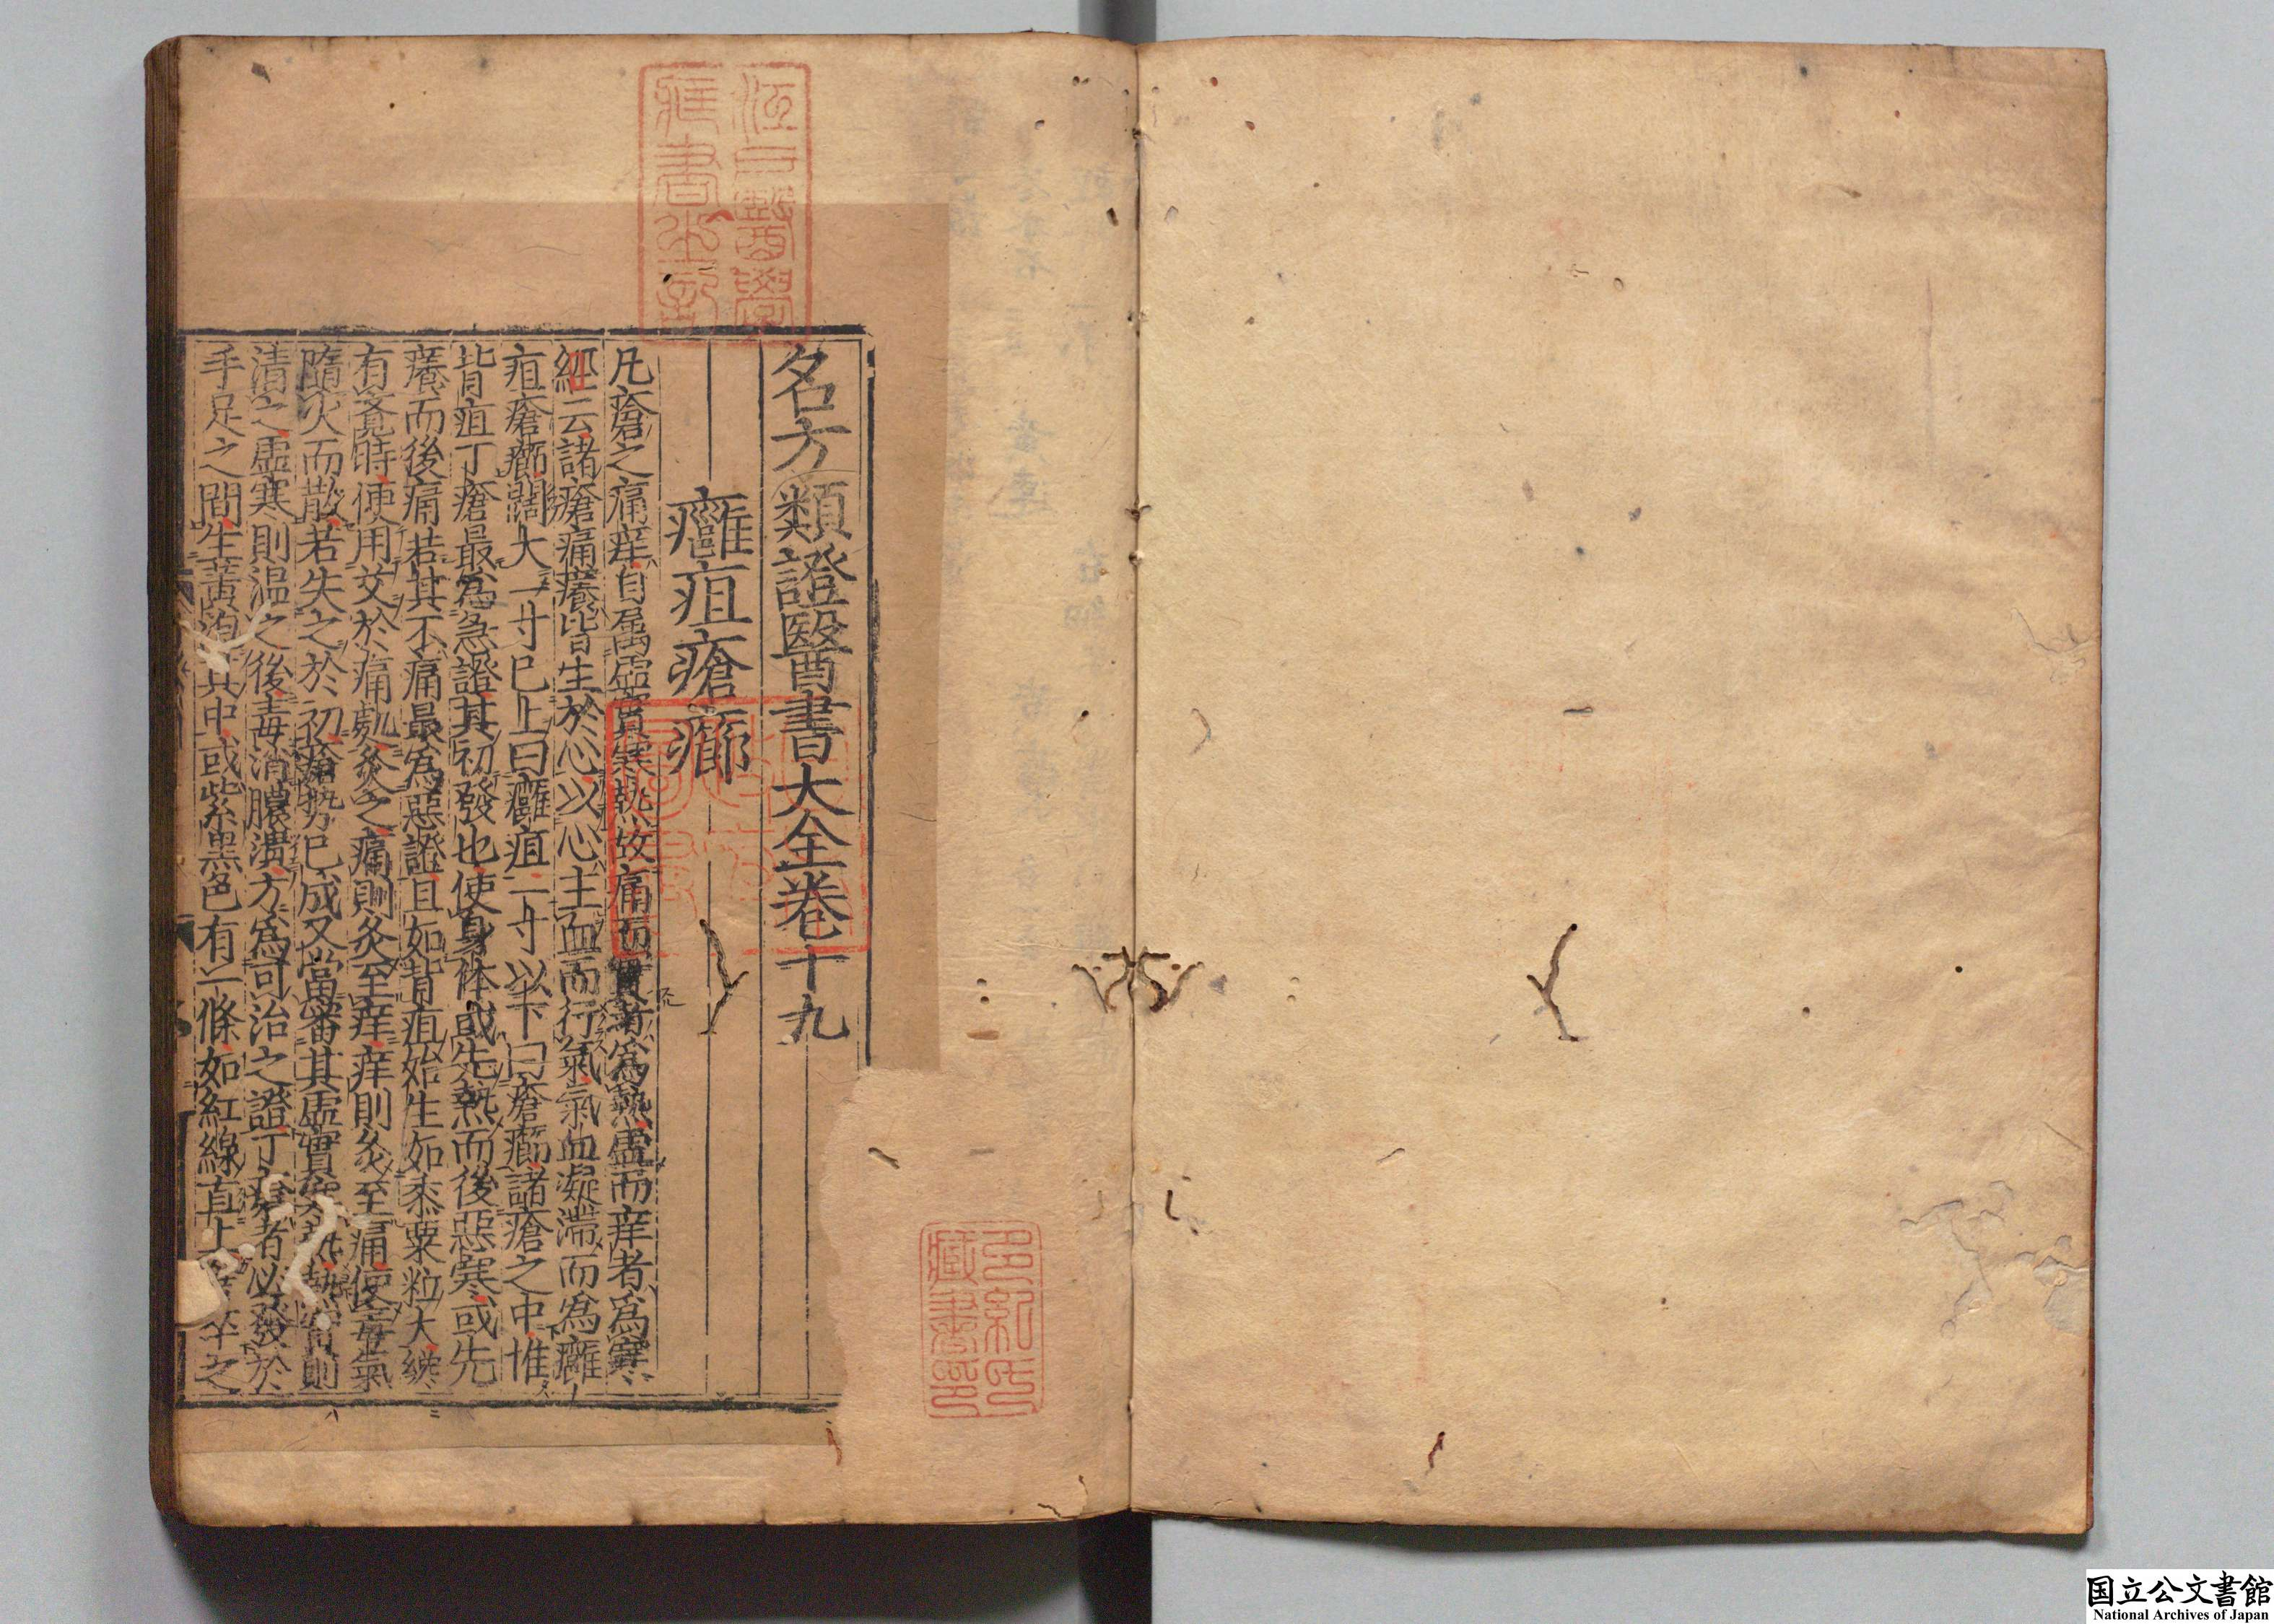 名方類證醫書大全卷十九
癰疽瘡癤
凡瘡之痛痒自属虛實寒熱故痛而實者爲熱虛而痒者爲寒
經云諸瘡痛癢皆生於心以心主血而行氣氣血凝滯而爲癰
疽瘡癤闊大一寸已上曰癰疽一寸以下曰瘡癤諸瘡之中惟
背疽丁瘡最爲急證其初發也使身体或先熱而後惡寒或先
癢而後痛若其不痛最爲惡證且如背疽始生如黍粟粒大纔
有覺時便用艾於痛處灸之痛則灸至痒痒則灸至痛使毒氣
隨火而散若失之於初瘡勢已成又當審其虛實寒熱熱實則
清之虛寒則温之後毒消膿潰方爲可治之證丁瘡者必發於
手足之間生黃泡其中或紫黑色有一條如紅線直上
江戸醫學
藏書之記
多紀氏
藏書印
国立公文書館
National Archives of Japan